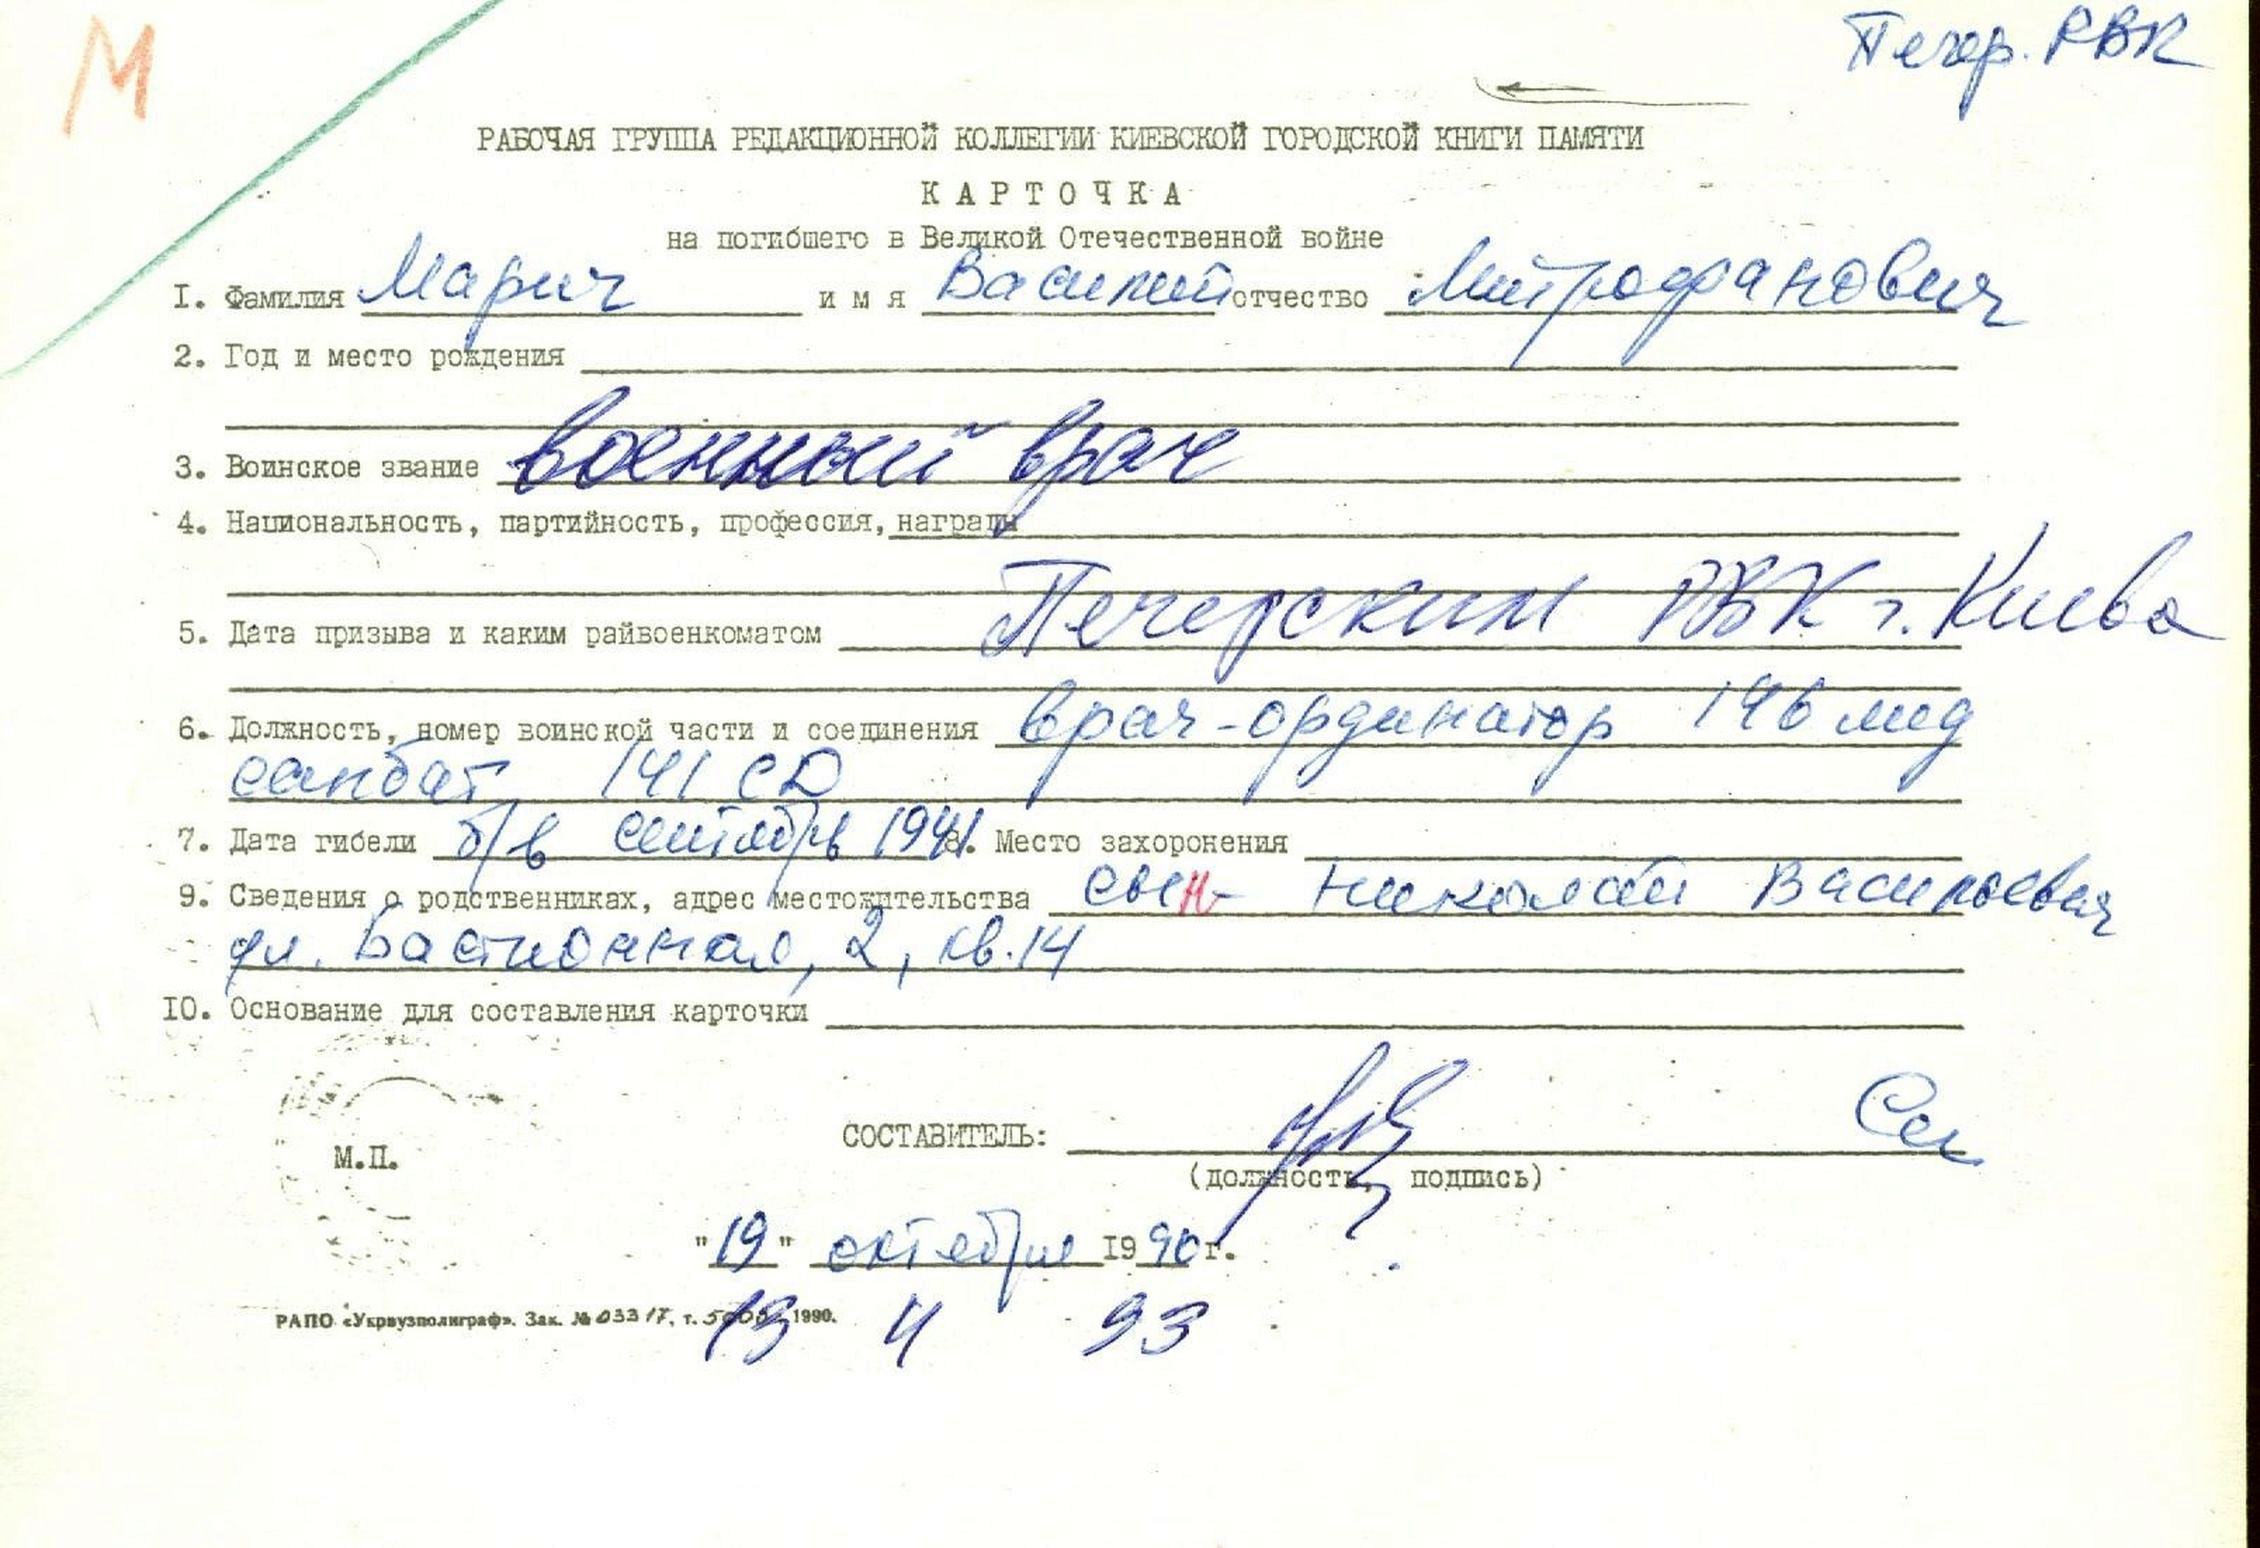 М
Печер. РВК
РАБОЧАЯ ГРУППА РЕДАКЦИОННОЙ КОЛЛЕГИИ КИЕВСКОЙ ГОРОДСКОЙ КНИГИ ПАМЯТИ
КАРТОЧКА
на погибшего в Великой Отечественной войне
I. Фамилия Марич имя Василий отчество Митрофанович
2. Год и место рождения
3. Воинское звание военный врач
4. Национальность, партийность, профессия, награды
Печерским РВК г. Киева
5. Дата призыва и каким райвоенкоматом
6. Должность, номер воинской части и соединения врач-ординатор 196 мед
санбат 141 СД
7. Дата гибели б/в сентябрь 1941 8. Место захоронения
9. Сведения о родственниках, адрес местожительства сын- Николай Васильевич
ул. Бастионная, 2, кв. 14
IO. Основание для составления карточки
СОСТАВИТЕЛЬ:
М.П.
(должность, подпись)
"19" октября 1990 г.
РАПО «Укрвузполиграф». Зак. № 03317, т. 5000, 1990.
13 4 93